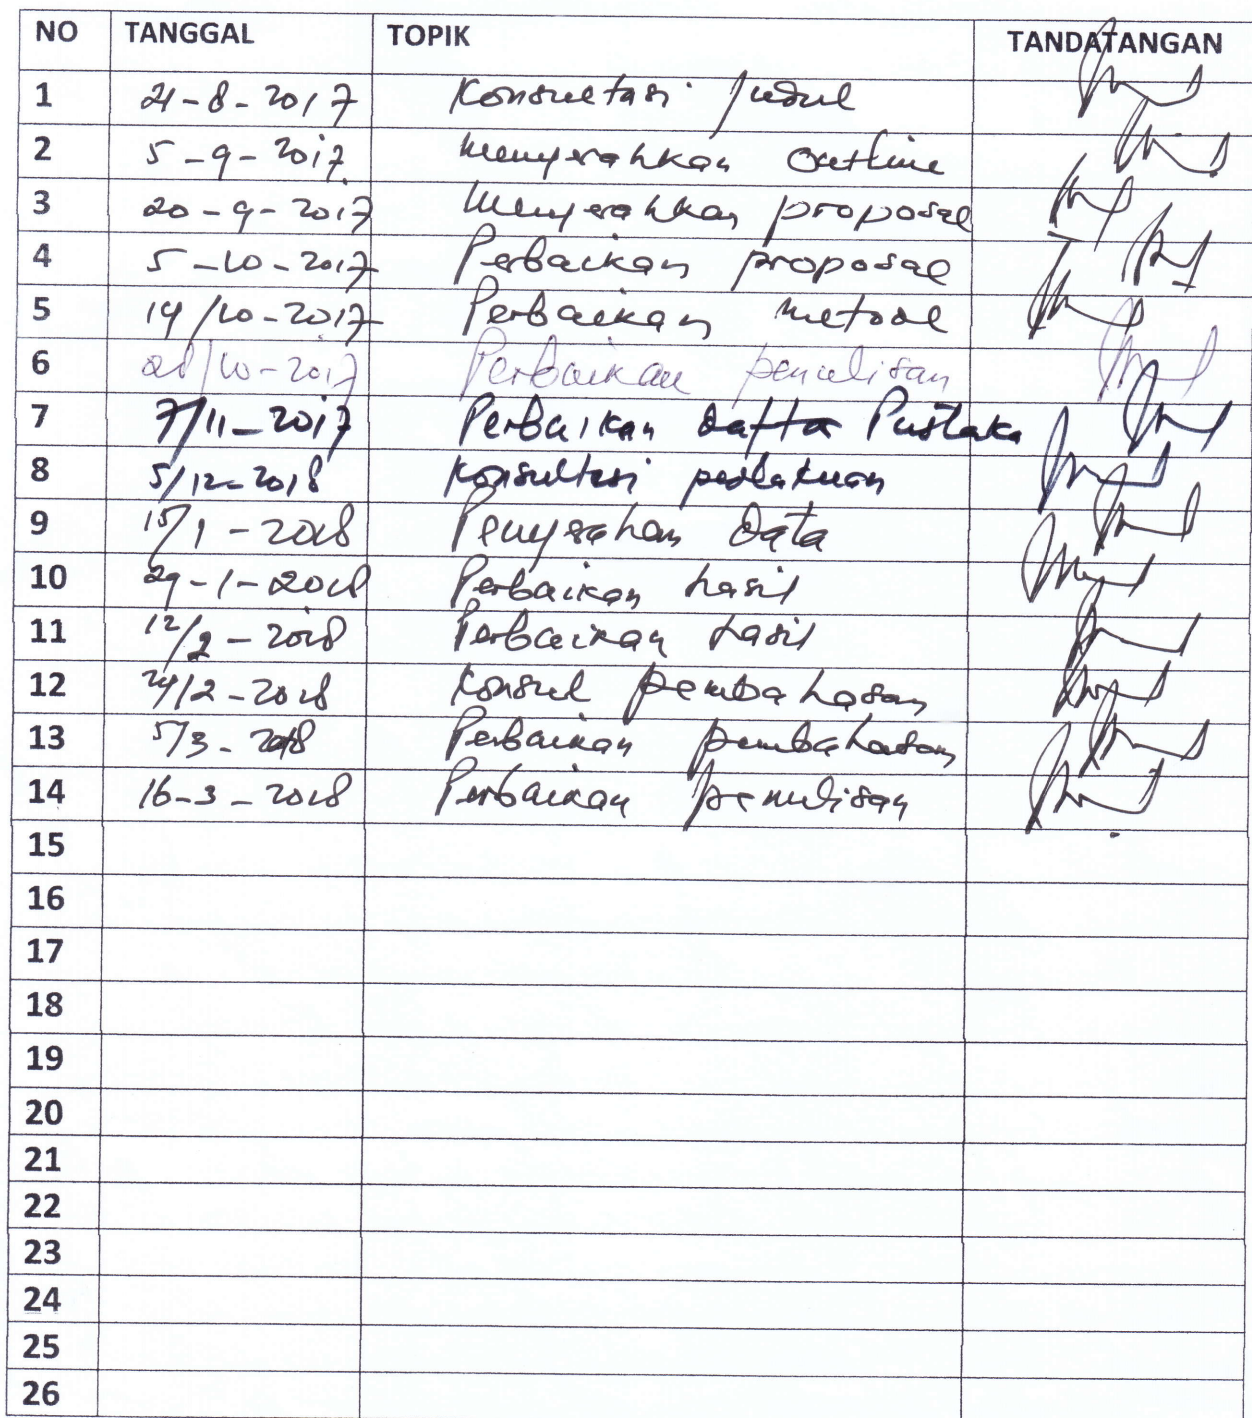 NO TANGGAL TOPIK TANDATANGAN
1 21-8-2017 Konsultasi Judul
2 5-9-2017 Menyerahkan Outline
3 20-9-2017 Menyerahkan proposal
4 5-10-2017 Perbaikan proposal
5 14/10-2017 Perbaikan metode
6 28/10-2017 Perbaikan penulisan
7 7/11-2017 Perbaikan Daftar Pustaka
8 5/12-2018 Konsultasi perlakuan
9 15/1-2018 Penyerahan Data
10 29-1-2018 Perbaikan hasil
11 12/2-2018 Perbaikan hasil
12 24/2-2018 Konsul pembahasan
13 5/3-2018 Perbaikan pembahasan
14 16-3-2018 Perbaikan penulisan
15
16
17
18
19
20
21
22
23
24
25
26